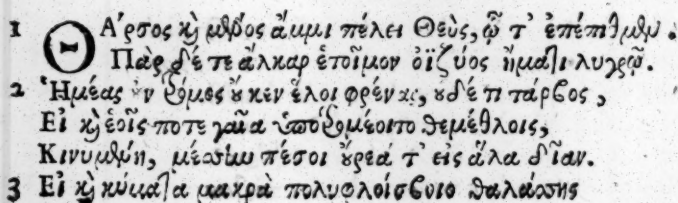 1 ΘΆρσος καὶ μένος ἄμμι πέλει Θεὺς, ᾧ τ' ἐπέπιθμεν.
Πὰρ δέ τε ἄλκαρ ἑτοῖμον ὀϊζύος ἤματι λυγρῷ.
2 Ἡμέας ὖν τρόμος οὔ κεν ἕλοι φρένας, οὐδέ τι τάρβος,
Εἰ καὶ ἑοῖς ποτε γαῖα ὑποτρομέοιτο θεμέθλοις,
Κινυμένη, μέσσῳ πέσοι οὔρεά τ' εἰς ἅλα δῖαν.
3 Εἰ καὶ κύματα μακρὰ πολυφλοίσβοιο θαλάσσης